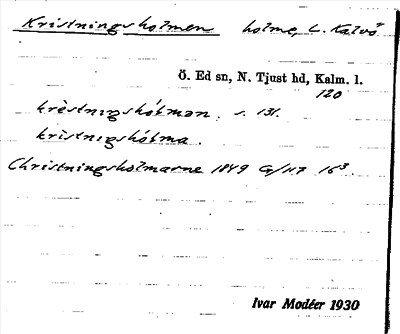 Kristningsholmen holme, L. Kalvö
Ö. Ed sn, N. Tjust hd, Kalm. l.
120
krèstnɪŋshólmən. s. 131.
kristnɪŋshólma.
Christningsholmarne 1849 G/117 16³.
Ivar Modéer 1930